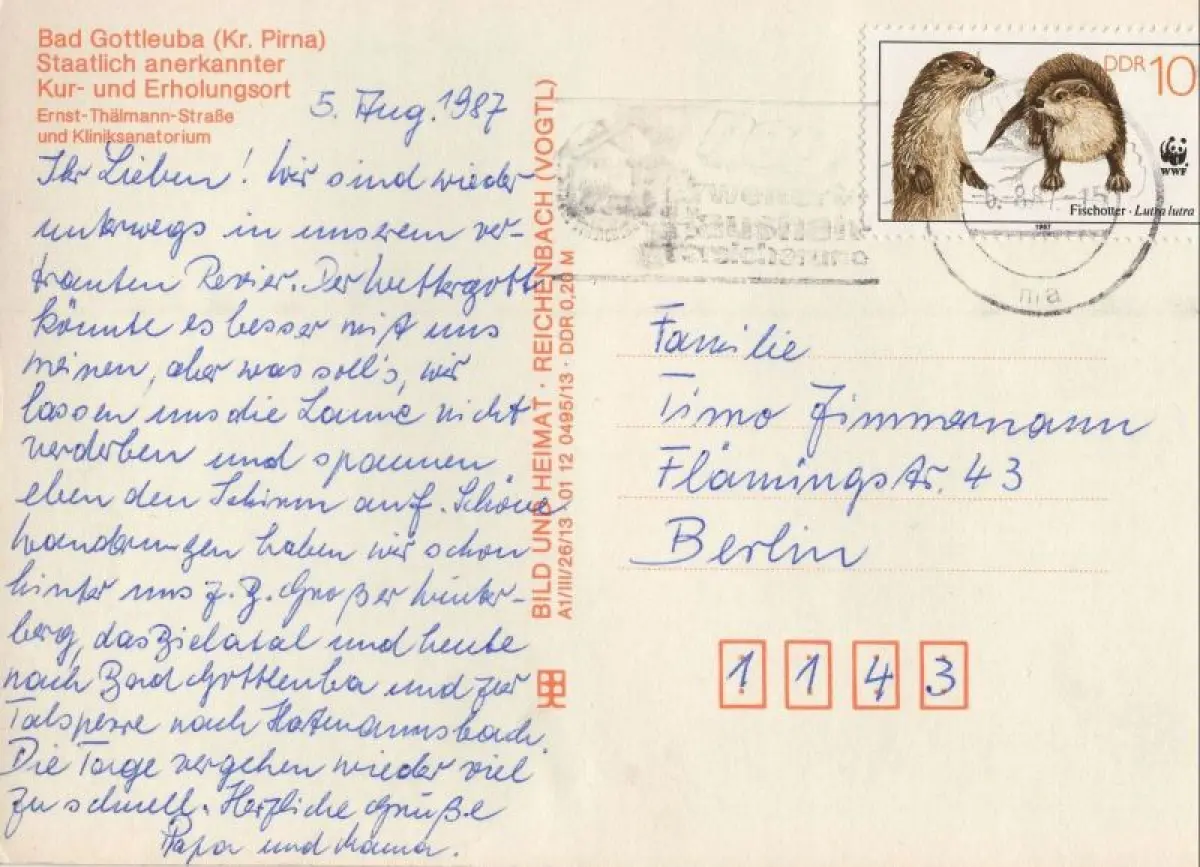 Bad Gottleuba (Kr. Pirna)
Staatlich anerkannter
Kur- und Erholungsort
Ernst-Thälmann-Straße
und Kliniksanatorium
5. Aug. 1987
Ihr Lieben! Wir sind wieder
unterwegs in unserem ver-
trauten Revier. Der Wettergott
könnte es besser mit uns
meinen, aber was soll's, wir
lassen uns die Laune nicht
verderben und spannen
eben den Schirm auf. Schöne
Wanderungen haben wir schon
hinter uns z. B. Großer Winter-
berg, das Bielatal und heute
nach Bad Gottleuba und zur
Talsperre nach
Die Tage vergehen wieder viel
zu schnell. Herzliche Grüße
Papa und Mama.
BILD UND HEIMAT · REICHENBACH (VOGTL)
A1/III/26/13 01 12 0495/13 · DDR 0,20 M
DDR 10
WWF
Fischotter · Lutra lutra
1987
-6.-8.87.-15
na
Familie
Timo Zimmermann
Flämingstr. 43
Berlin
1 1 4 3